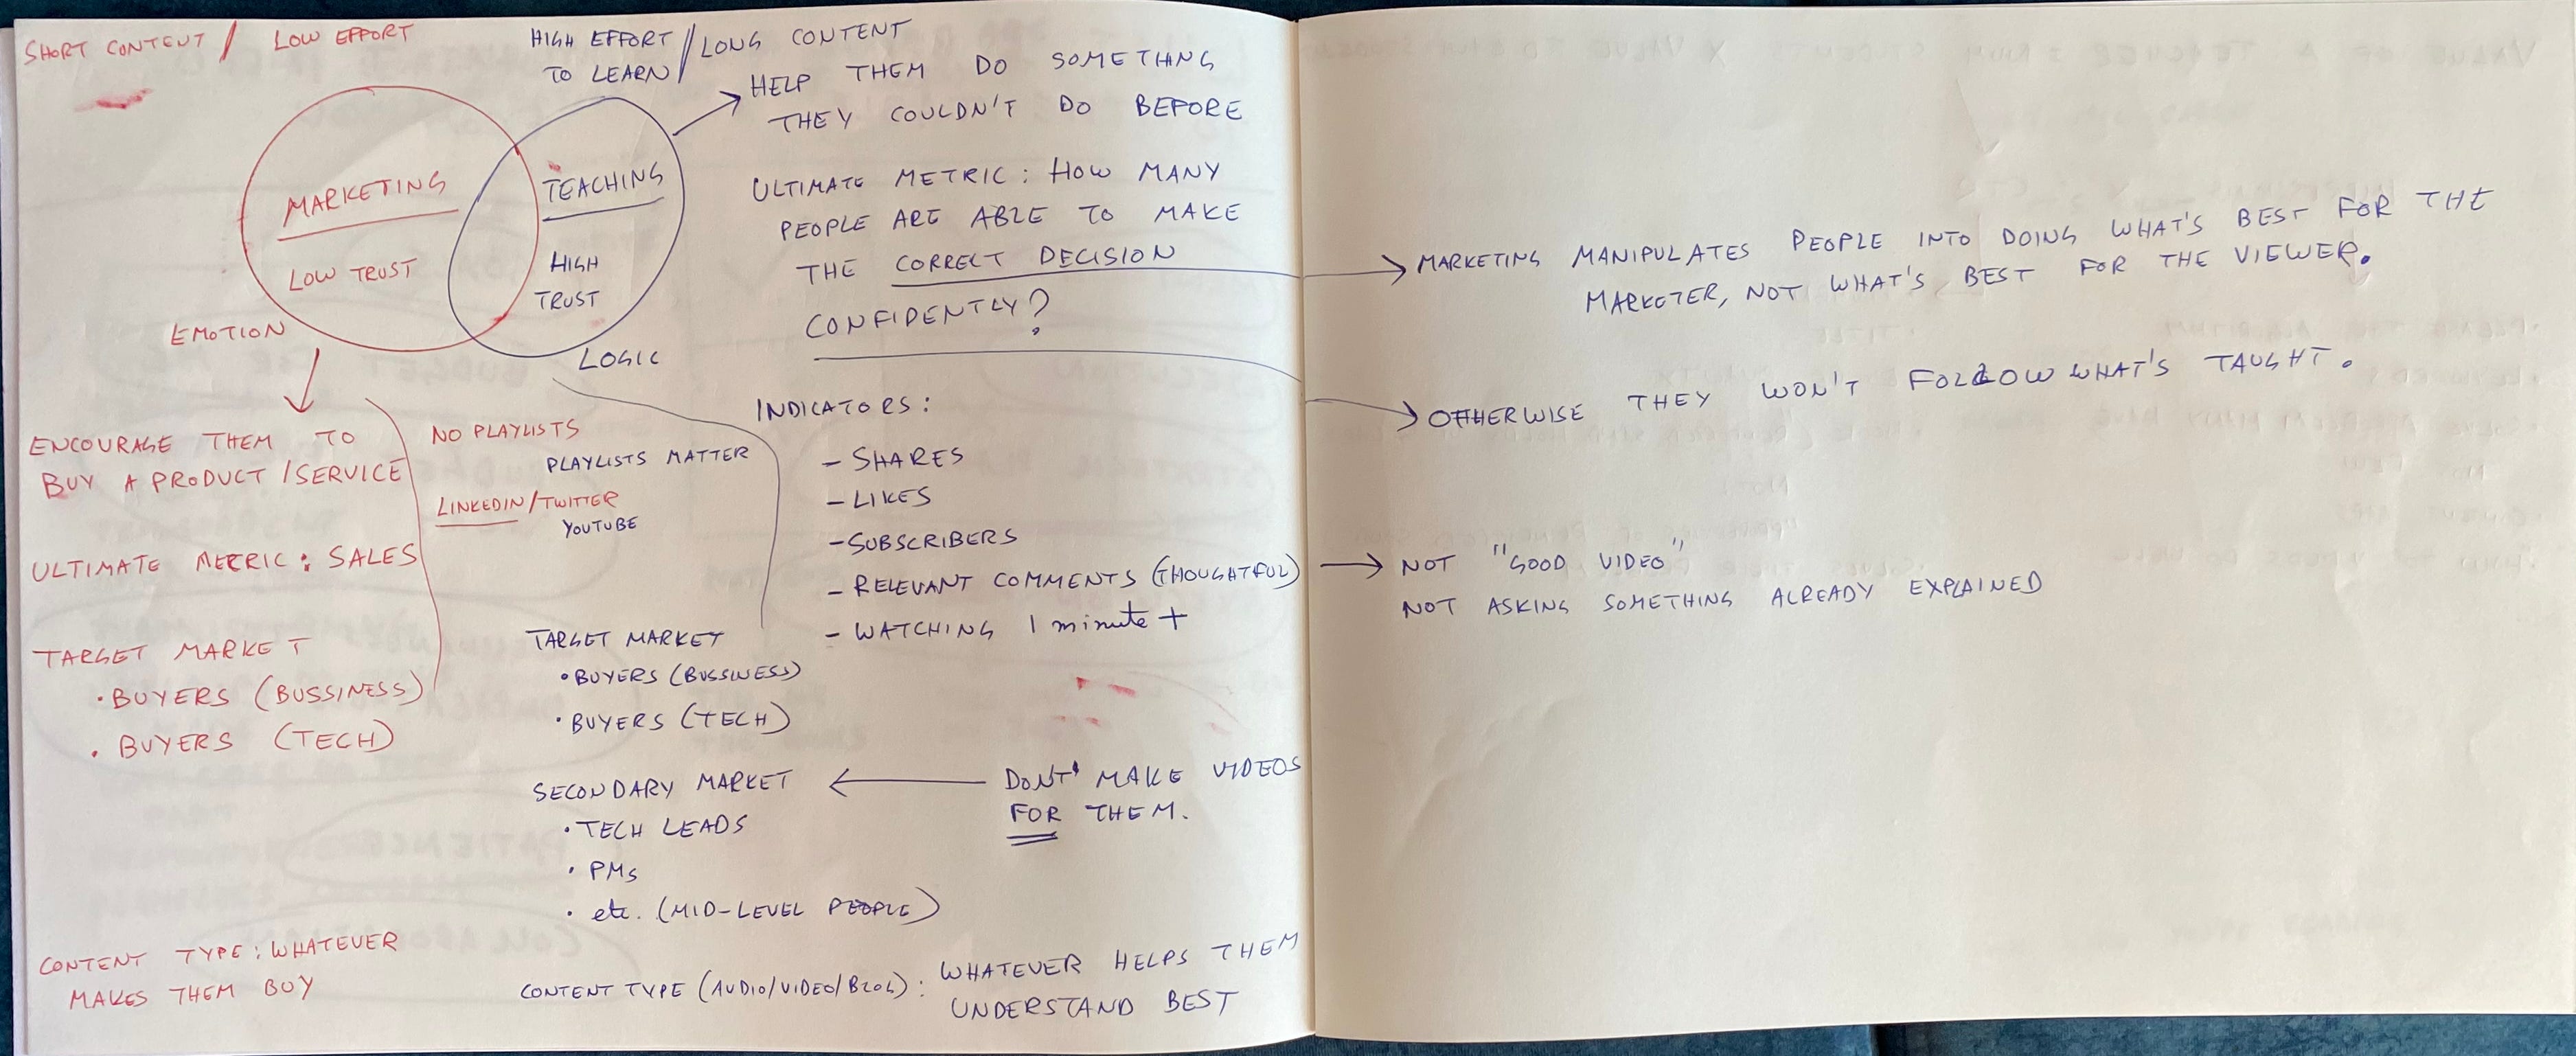 SHORT CONTENT / LOW EFFORT
HIGH EFFORT / LONG CONTENT
TO LEARN
HELP THEM DO SOMETHING
THEY COULDN'T DO BEFORE
MARKETING
LOW TRUST
EMOTION
TEACHING
HIGH
TRUST
LOGIC
ULTIMATE METRIC: HOW MANY
PEOPLE ARE ABLE TO MAKE
THE CORRECT DECISION
CONFIDENTLY?
MARKETING MANIPULATES PEOPLE INTO DOING WHAT'S BEST FOR THE
MARKETER, NOT WHAT'S BEST FOR THE VIEWER.
OTHERWISE THEY WON'T FOLLOW WHAT'S TAUGHT.
ENCOURAGE THEM TO
BUY A PRODUCT/SERVICE
ULTIMATE METRIC: SALES
TARGET MARKET
• BUYERS (BUSSINESS)
• BUYERS (TECH)
NO PLAYLISTS
PLAYLISTS MATTER
LINKEDIN/TWITTER
YOUTUBE
INDICATORS:
- SHARES
- LIKES
- SUBSCRIBERS
- RELEVANT COMMENTS (THOUGHTFUL)
- WATCHING 1 minute +
NOT "GOOD VIDEO"
NOT ASKING SOMETHING ALREADY EXPLAINED
TARGET MARKET
• BUYERS (BUSSINESS)
• BUYERS (TECH)
SECONDARY MARKET
• TECH LEADS
• PMs
• etc. (MID-LEVEL PEOPLE)
DONT' MAKE VIDEOS
FOR THEM.
CONTENT TYPE: WHATEVER
MAKES THEM BUY
CONTENT TYPE (AUDIO/VIDEO/BLOG): WHATEVER HELPS THEM
UNDERSTAND BEST